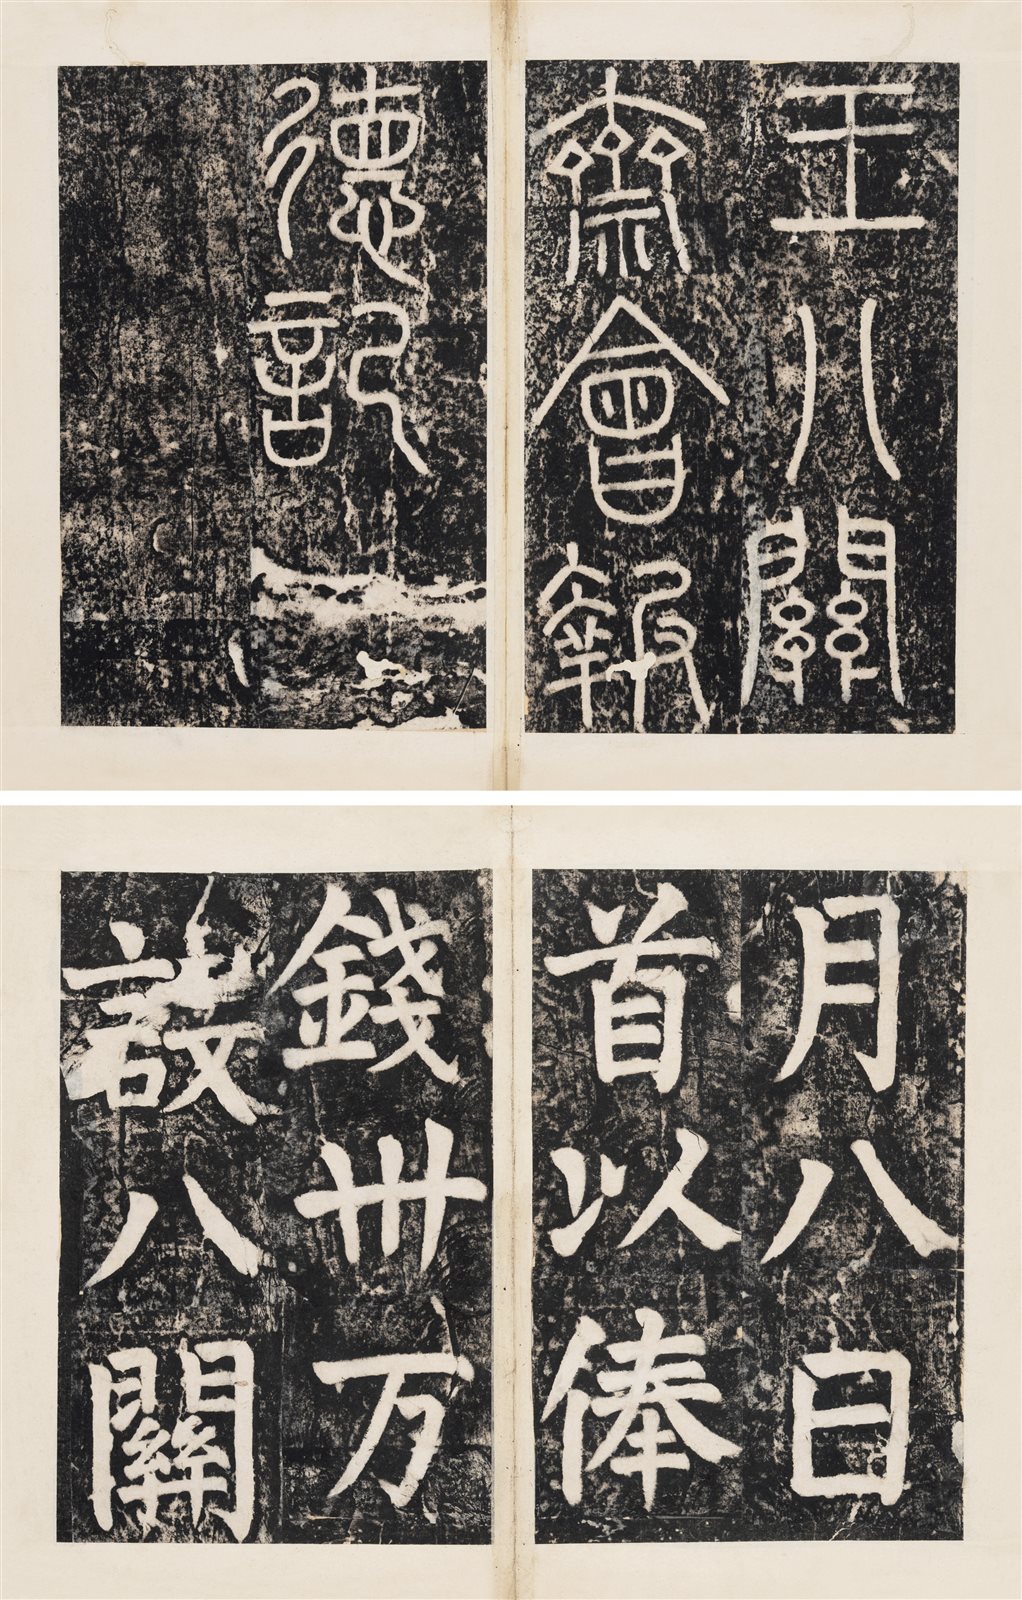 王八關
齋會報
德記
月八日
首以俸
錢卅万
設八關